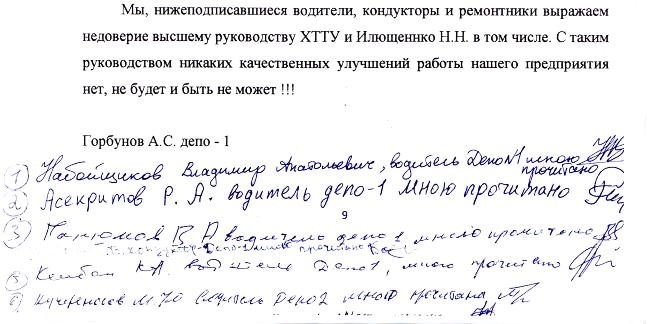 Мы, нижеподписавшиеся водители, кондукторы и ремонтники выражаем
недоверие высшему руководству ХТТУ и Илющеннко Н.Н. в том числе. С таким
руководством никаких качественных улучшений работы нашего предприятия
нет, не будет и быть не может !!!
Горбунов А.С. депо - 1
1) Набойщиков Владимир Анатольевич, водитель Депо N1 мною
прочитано
2) Асекритов Р. А. водитель депо-1 мною прочитано
3) водитель депо 1, мною прочитано
К.А. водитель Депо 1, мною прочитано
водитель Депо 2 мною прочитано